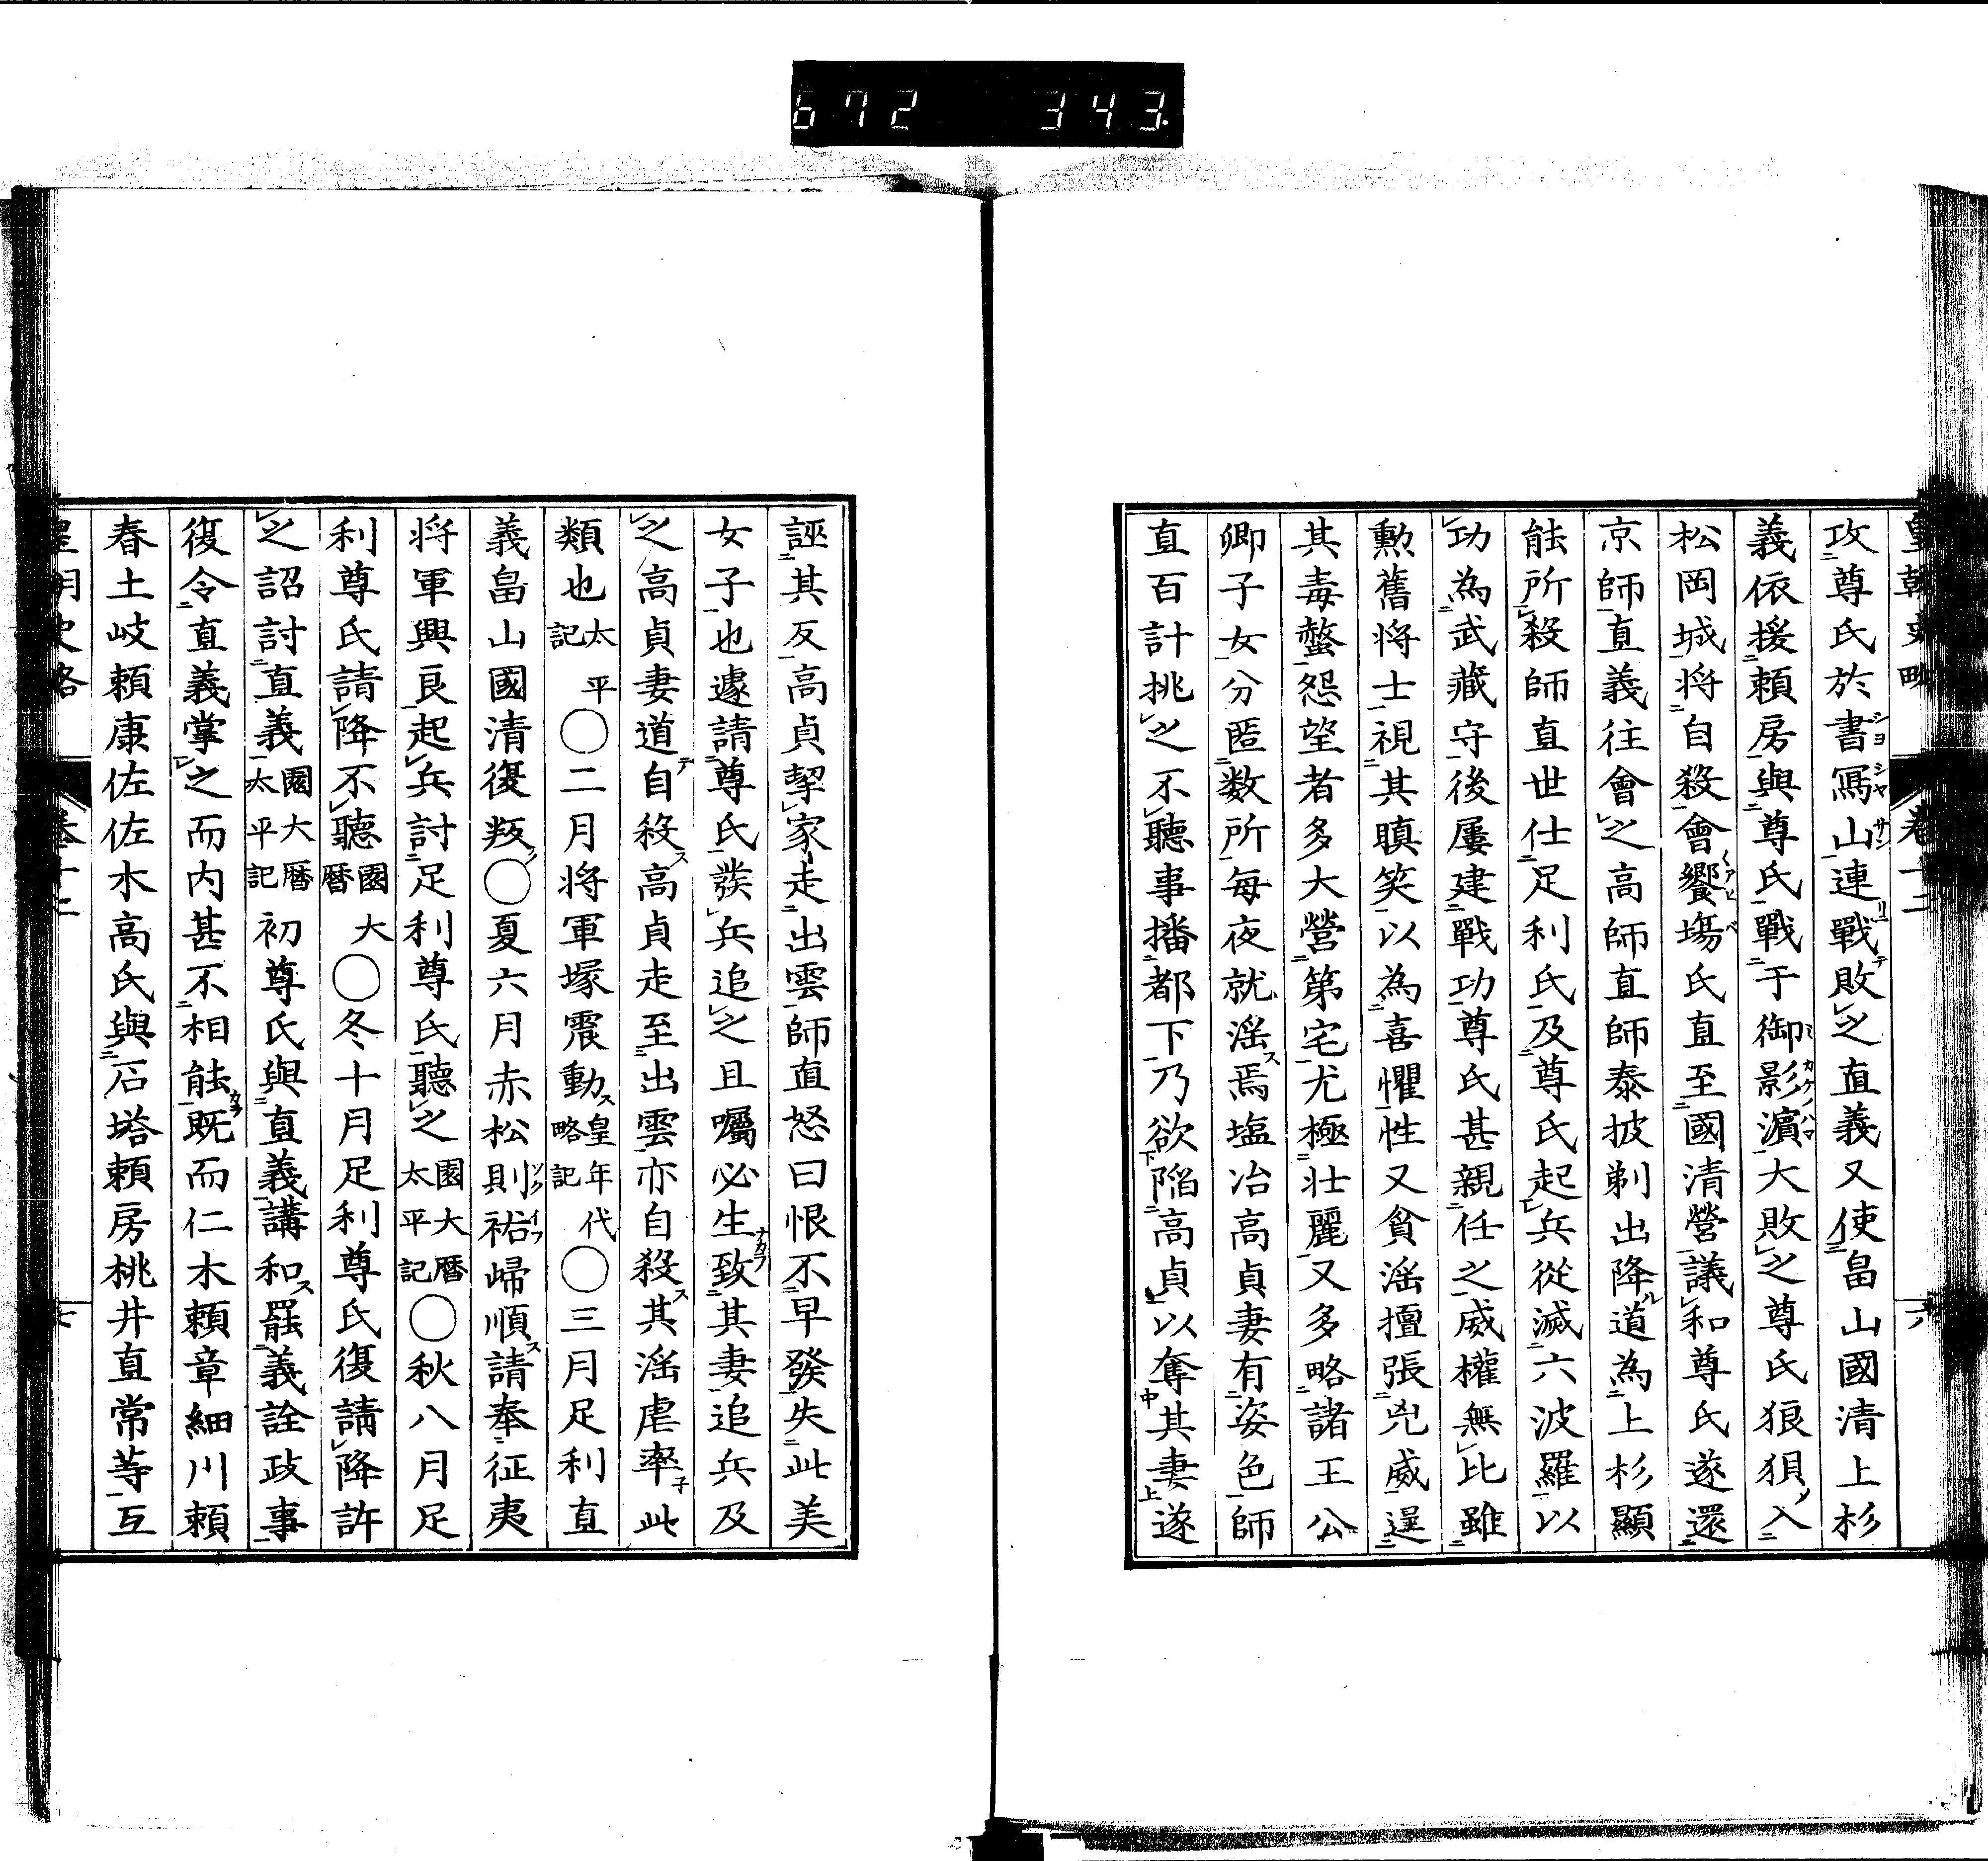 672 343.
皇朝史略 卷十二 六
攻尊氏於書冩山連戰敗之直義又使畠山國清上杉
義依援頼房與尊氏戰于御影濵大敗之尊氏狼狽入
松岡城將自殺會饗塲氏直至國清營議和尊氏遂還
京師直義往會之高師直師泰披剃出降道為上杉顯
能所殺師直世仕足利氏及尊氏起兵從滅六波羅以
功為武藏守後屢建戰功尊氏甚親任之威權無比雖
勲舊将士視其瞋笑以為喜懼性又貪滛擅張兇威逞
其毒螫怨望者多大營第宅尤極壮麗又多略諸王公
卿子女分匿数所每夜就滛焉塩冶高貞妻有姿色師
直百計挑之不聽事播都下乃欲陥高貞以奪其妻遂
誣其反高貞挈家走出雲師直怒曰恨不早發失此美
女子也遽請尊氏發兵追之且囑必生致其妻追兵及
之高貞妻道自殺高貞走至出雲亦自殺其滛虐率此
類也太平記○二月将軍塚震動皇年代略記○三月足利直
義畠山國清復叛○夏六月赤松則祐歸順請奉征夷
将軍興良起兵討足利尊氏聽之園大曆太平記○秋八月足
利尊氏請降不聽園大曆○冬十月足利尊氏復請降許
之詔討直義園大曆太平記初尊氏與直義講和罷義詮政事
復令直義掌之而内甚不相能既而仁木頼章細川頼
春土岐頼康佐佐木高氏與石塔頼房桃井直常等互
皇朝史略 卷十二 七